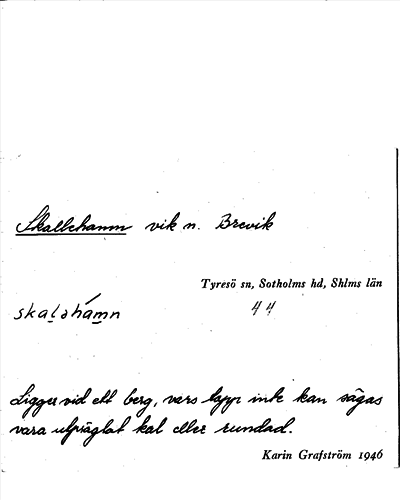 Skallehamn vik n. Brevik
Tyresö sn, Sotholms hd, Shlms län
44
skaləhámn
Ligger vid ett berg, vars topp inte kan sägas
vara utpräglat kal eller rundad.
Karin Grafström 1946